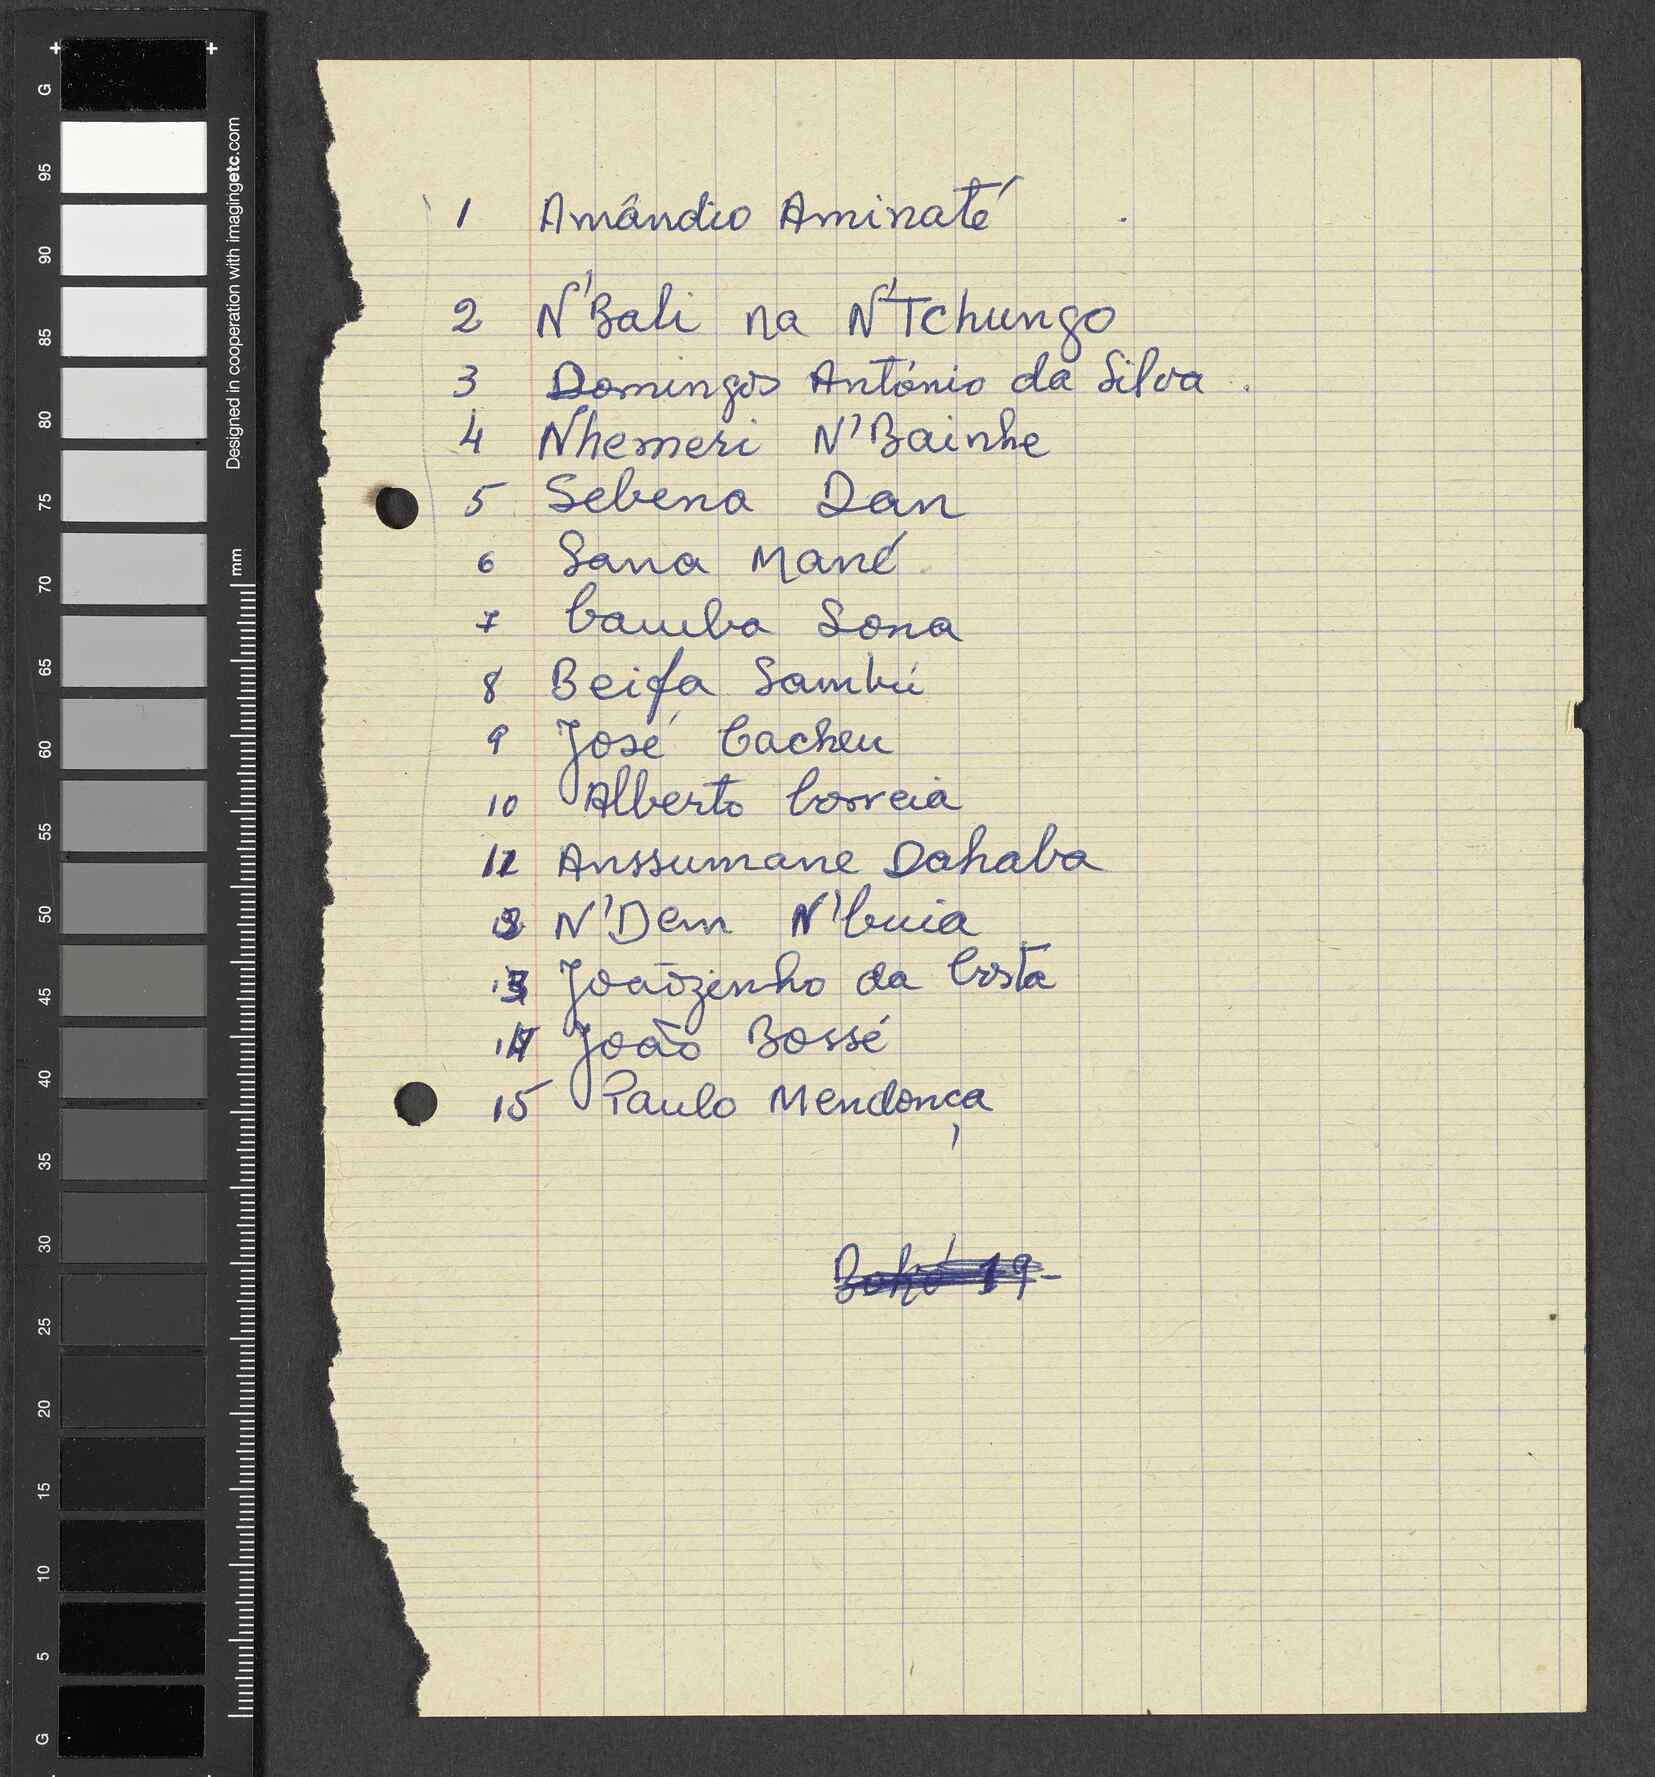 1 Amândio Aminaté
2 N'Bali na N'Tchungo
3 Domingos António da Silva.
4 Nhemeri N'Bainhe
5 Sebena Dan
6 Sana Mané
7 Camba Sona
8 Beifa Sambú
9 José Cacheu
10 Alberto Correia
11 Anssumane Dahaba
12 N'Dem N'Cuia
13 Joãozinho da Costa
14 João Bossé
15 Paulo Mendonça
Designed in cooperation with imagingetc.com
mm
G
95
90
85
80
75
70
65
60
55
50
45
40
35
30
25
20
15
10
5
G